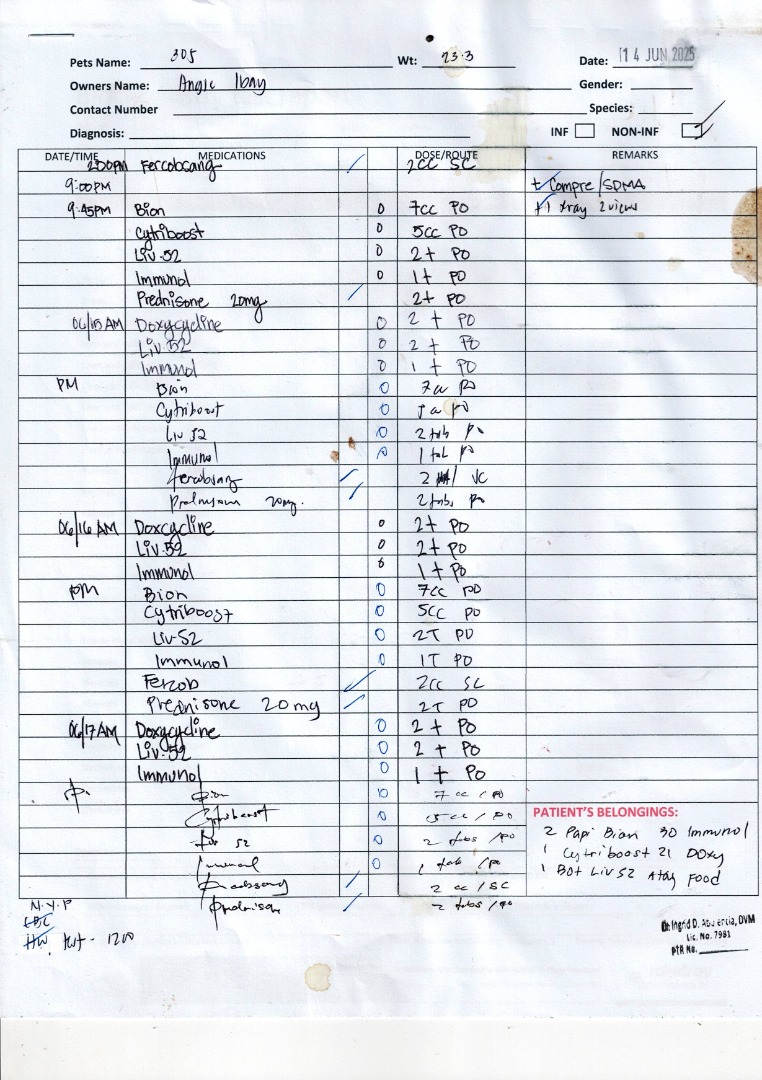 Pets Name: 305 Wt: 23.3 Date: 14 JUN 2025
Owners Name: Angie Ibay Gender:
Contact Number Species:
Diagnosis: INF NON-INF
DATE/TIME MEDICATIONS DOSE/ROUTE REMARKS
2:00PM Fercobsang 2CC SC
9:00PM + Compre/SDMA
9:45PM Bion 0 7cc PO +1 xray 2 views
Cytriboost 0 5cc PO
Liv.52 0 2+ PO
Immunol 0 1+ PO
Prednisone 20mg 2+ PO
06/15 AM Doxycycline 0 2+ PO
Liv.52 0 2+ PO
Immunol 0 1+ PO
PM Bion 0 7cc PO
Cytriboost 0 5cc PO
Liv 52 0 2 tab PO
Immunol 0 1 tab PO
Fercobsang 2
Prednisone 20mg. 2 tabs PO
06/16 AM Doxcycline 0 2+ PO
Liv.52 0 2+ PO
Immunol 0 1+ PO
PM Bion 0 7cc PO
Cytriboost 0 5cc PO
Liv-52 0 2T PO
Immunol 0 1T PO
Fercob 2cc SC
Prednisone 20mg 2T PO
06/17 AM Doxycycline 0 2+ PO
Liv.52 0 2+ PO
Immunol 0 1+ PO
Bion 0 7 cc / PO
Cytriboost 0 5cc / PO
52 0 2 tabs / PO
Immunol 0 1 tab / PO
2 cc / SC
Prednison 2 tabs / PO
PATIENT'S BELONGINGS:
2 Papi Bion 30 Immunol
1 Cytriboost 21 Doxy
1 Bot Liv 52 Atay Food
N.Y.P
CBC
HW tst - 1200
Dr. Ingrid D. DVM
Lic. No. 7981
PTR No.